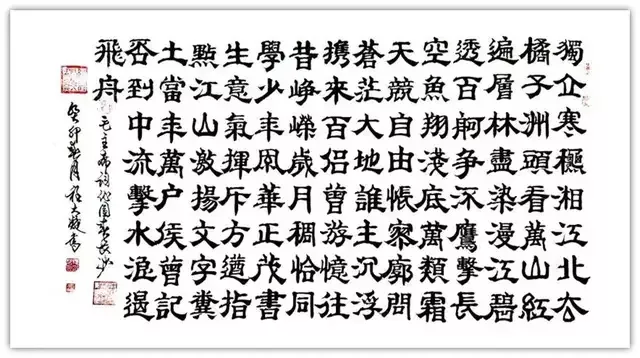 獨立寒穐湘江北去
橘子洲頭看萬山紅
遍層林盡染漫江碧
透百舸争流鷹擊長
空魚翔淺底萬類霜
天競自由悵寥廓問
蒼茫大地誰主沉浮
携來百侣曾游憶往
昔崢嶸歲月稠恰同
學少年風華正茂書
生意氣揮斥方遒指
點江山激揚文字糞
土當年萬户侯曾記
否到中流擊水浪遏
飛舟
毛主席詞沁園春長沙
癸卯 月 書